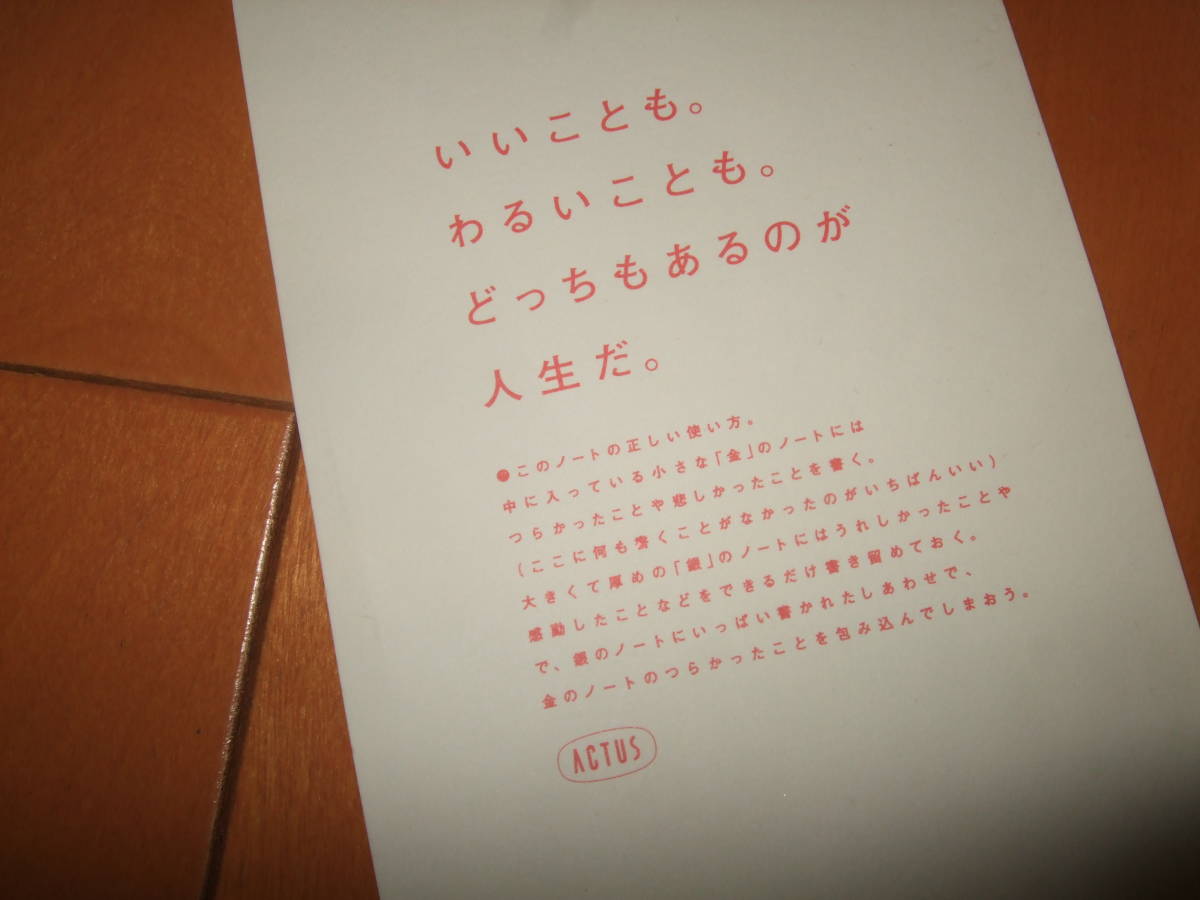 いいことも。
わるいことも。
どっちもあるのが
人生だ。
●このノートの正しい使い方。
中に入っている小さな「金」のノートには
つらかったことや悲しかったことを書く。
(ここに何も書くことがなかったのがいちばんいい)
大きくて厚めの「銀」のノートにはうれしかったことや
感動したことなどをできるだけ書き留めておく。
で、銀のノートにいっぱい書かれたしあわせで、
金のノートのつらかったことを包み込んでしまおう。
ACTUS